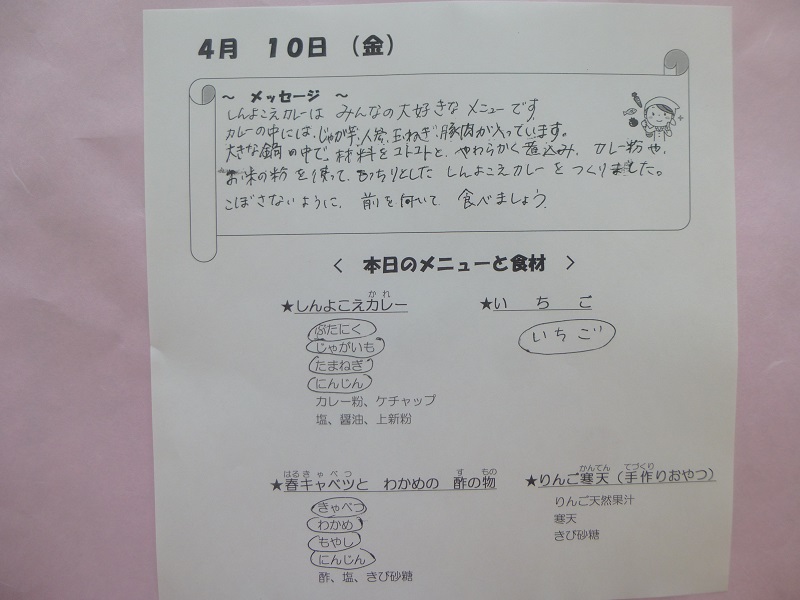 4月 10日 （金）
～ メッセージ ～
しんよこえカレーは みんなの大好きな メニューです
カレーの中には、じゃが芋、人参、玉ねぎ、豚肉が入っています。
大きな鍋の中で、材料をコトコトと、やわらかく煮込み、カレー粉や、
お米の粉を使って、もっちりとした しんよこえカレーを つくりました。
こぼさないように、前を向いて 食べましょう。
＜ 本日のメニューと食材 ＞
かれ
★しんよこえカレー
ぶたにく
じゃがいも
たまねぎ
にんじん
カレー粉、ケチャップ
塩、醤油、上新粉
★い ち ご
いちご
はるきゃべつ す もの
★春キャベツと わかめの 酢の物
きゃべつ
わかめ
もやし
にんじん
酢、塩、きび砂糖
かんてん てづくり
★りんご寒天（手作りおやつ）
りんご天然果汁
寒天
きび砂糖